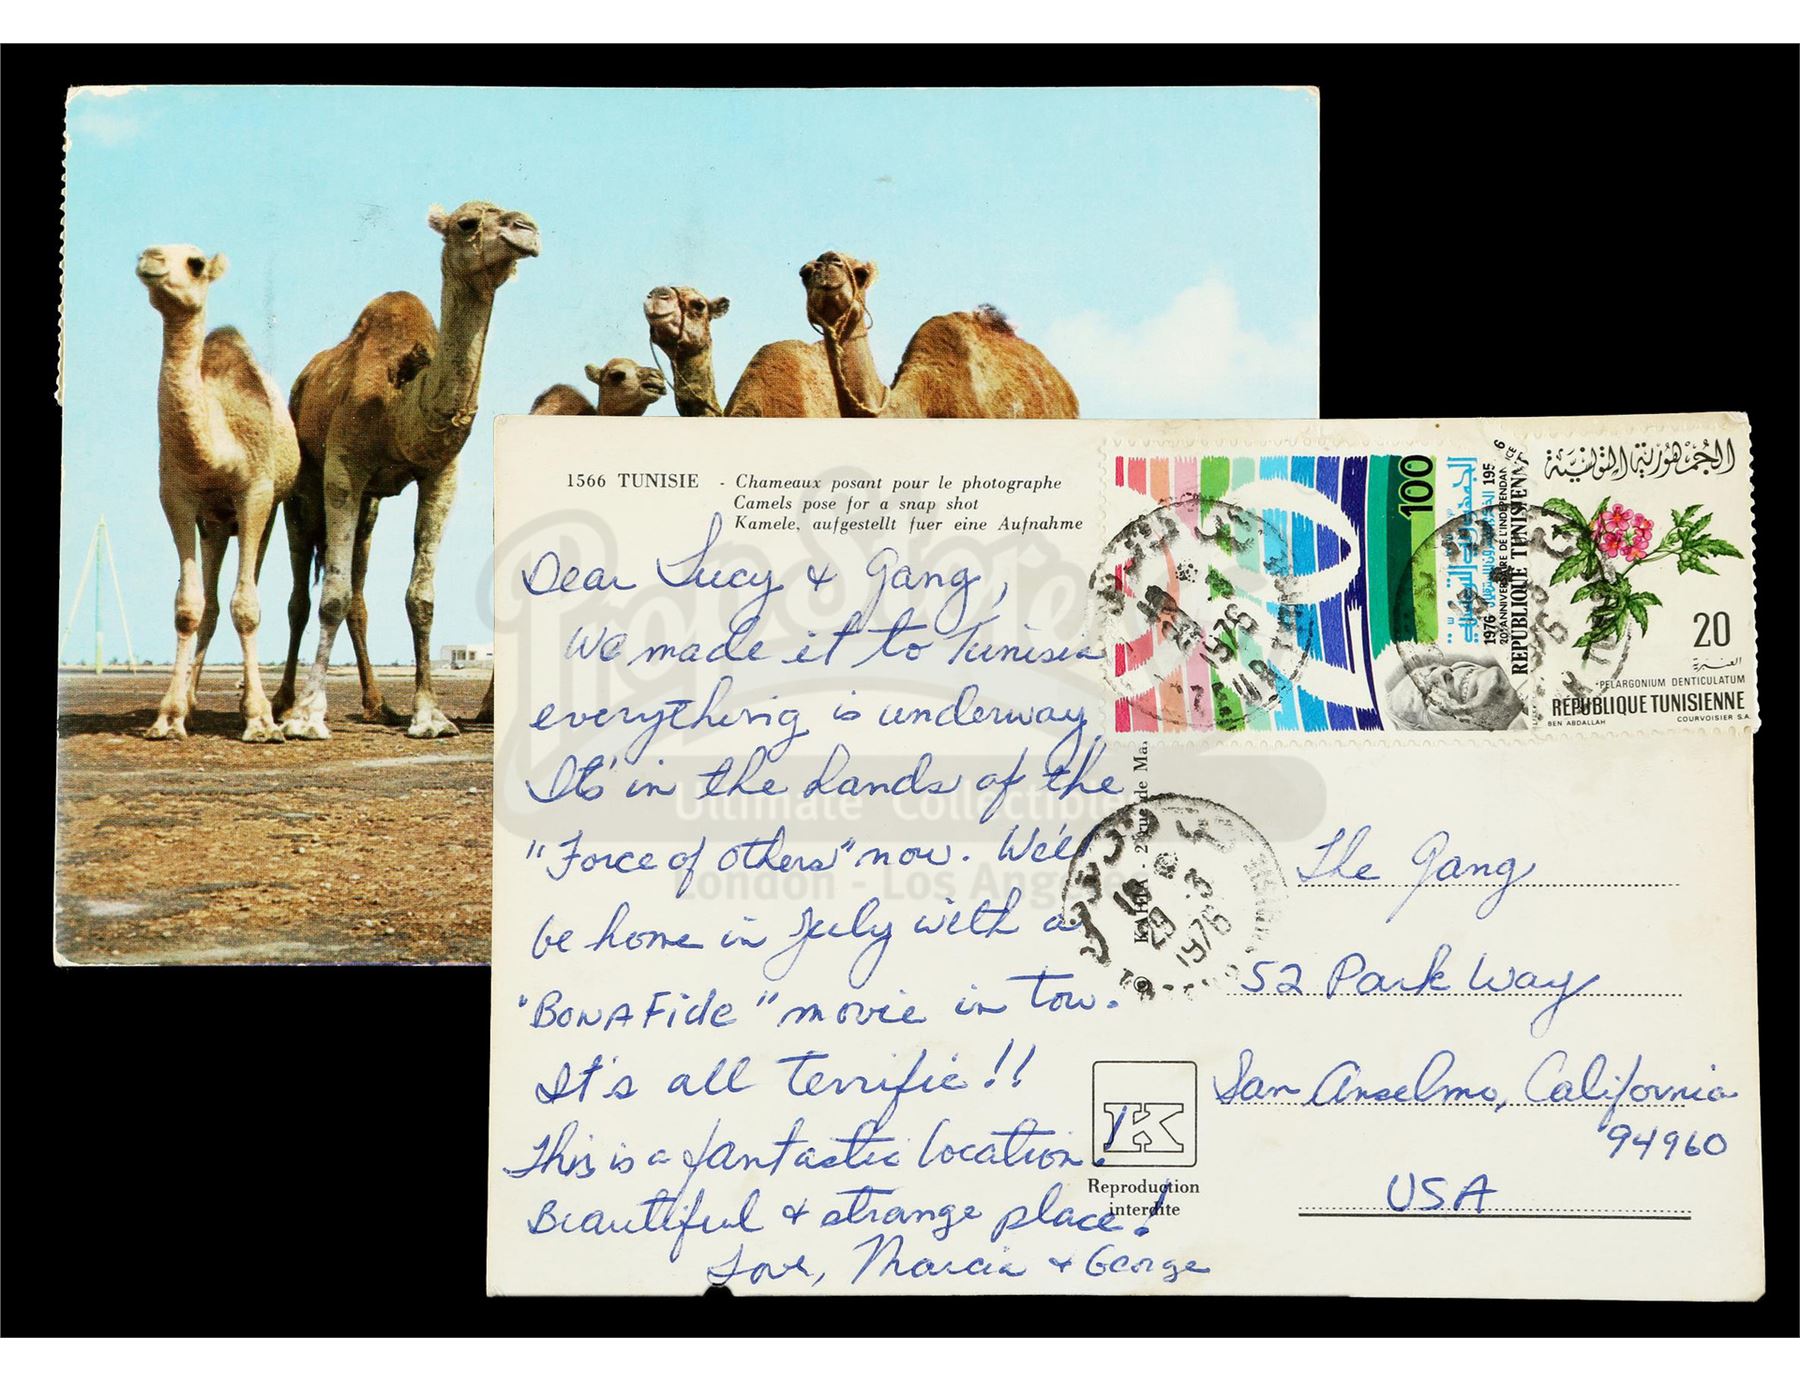 1566 TUNISIE - Chameaux posant pour le photographe
Camels pose for a snap shot
Kamele, aufgestellt fuer eine Aufnahme
Dear Lucy & Gang,
We made it to Tunisia
everything is underway
It's in the hands of the
"Force of others" now. We'll
be home in July with a
"BONA Fide" movie in tow.
It's all terrific!!
This is a fantastic location!
Beautiful & strange place!
Love, Marcia & George
100
الجمهورية التونسية
1976 195
20e ANNIVERSAIRE DE L'INDEPENDANCE
REPUBLIQUE TUNISIENNE
الجمهورية التونسية
20
PELARGONIUM DENTICULATUM
RÉPUBLIQUE TUNISIENNE
BEN ABDALLAH COURVOISIER S.A.
KAHIA - 2 rue de Ma
29 -3
1976
The Gang
52 Park Way
San Anselmo, California
94960
USA
K
Reproduction
interdite
Prop Store
Ultimate Collectibles
London - Los Angeles